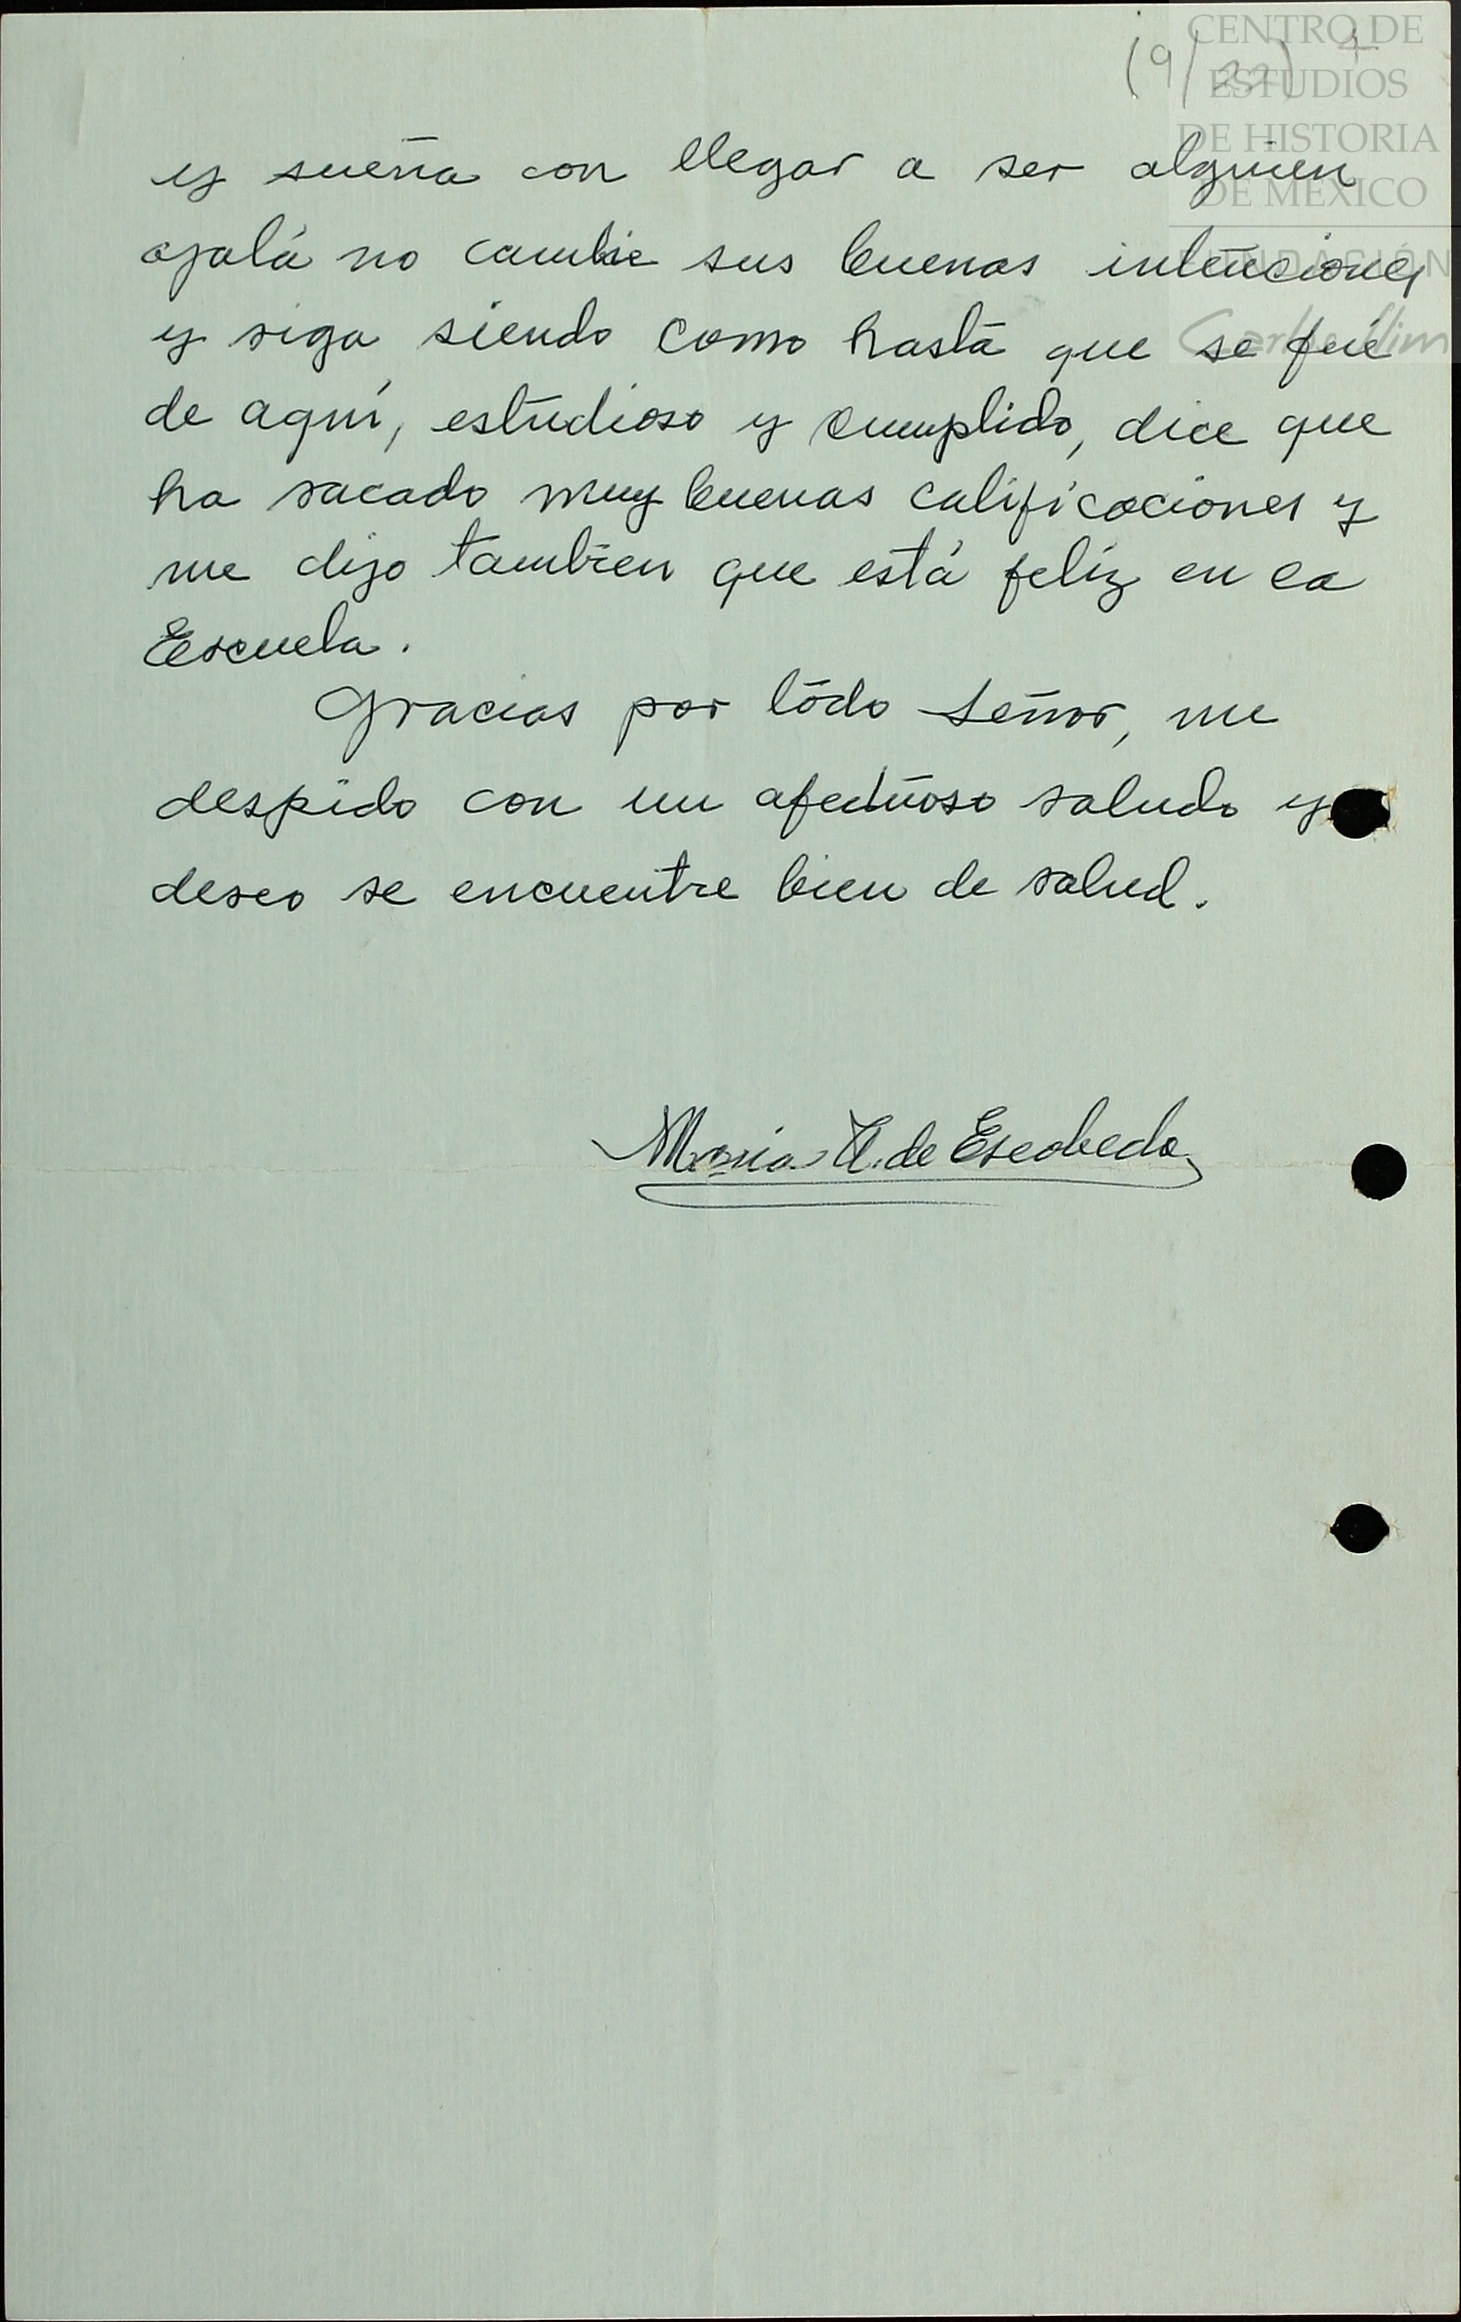 CENTRO DE
ESTUDIOS
DE HISTORIA
DE MÉXICO
FUNDACIÓN
Carlos Slim
(9/22)
y sueña con llegar a ser alguien
ojalá no cambie sus buenas intenciones
y siga siendo como hasta que se fué
de aquí, estudioso y cumplido, dice que
ha sacado muy buenas calificaciones y
me dijo tambien que está felíz en la
Escuela.
Gracias por todo señor, me
despido con un afectuoso saludo y
deseo se encuentre bien de salud.
Maria de Escobedo